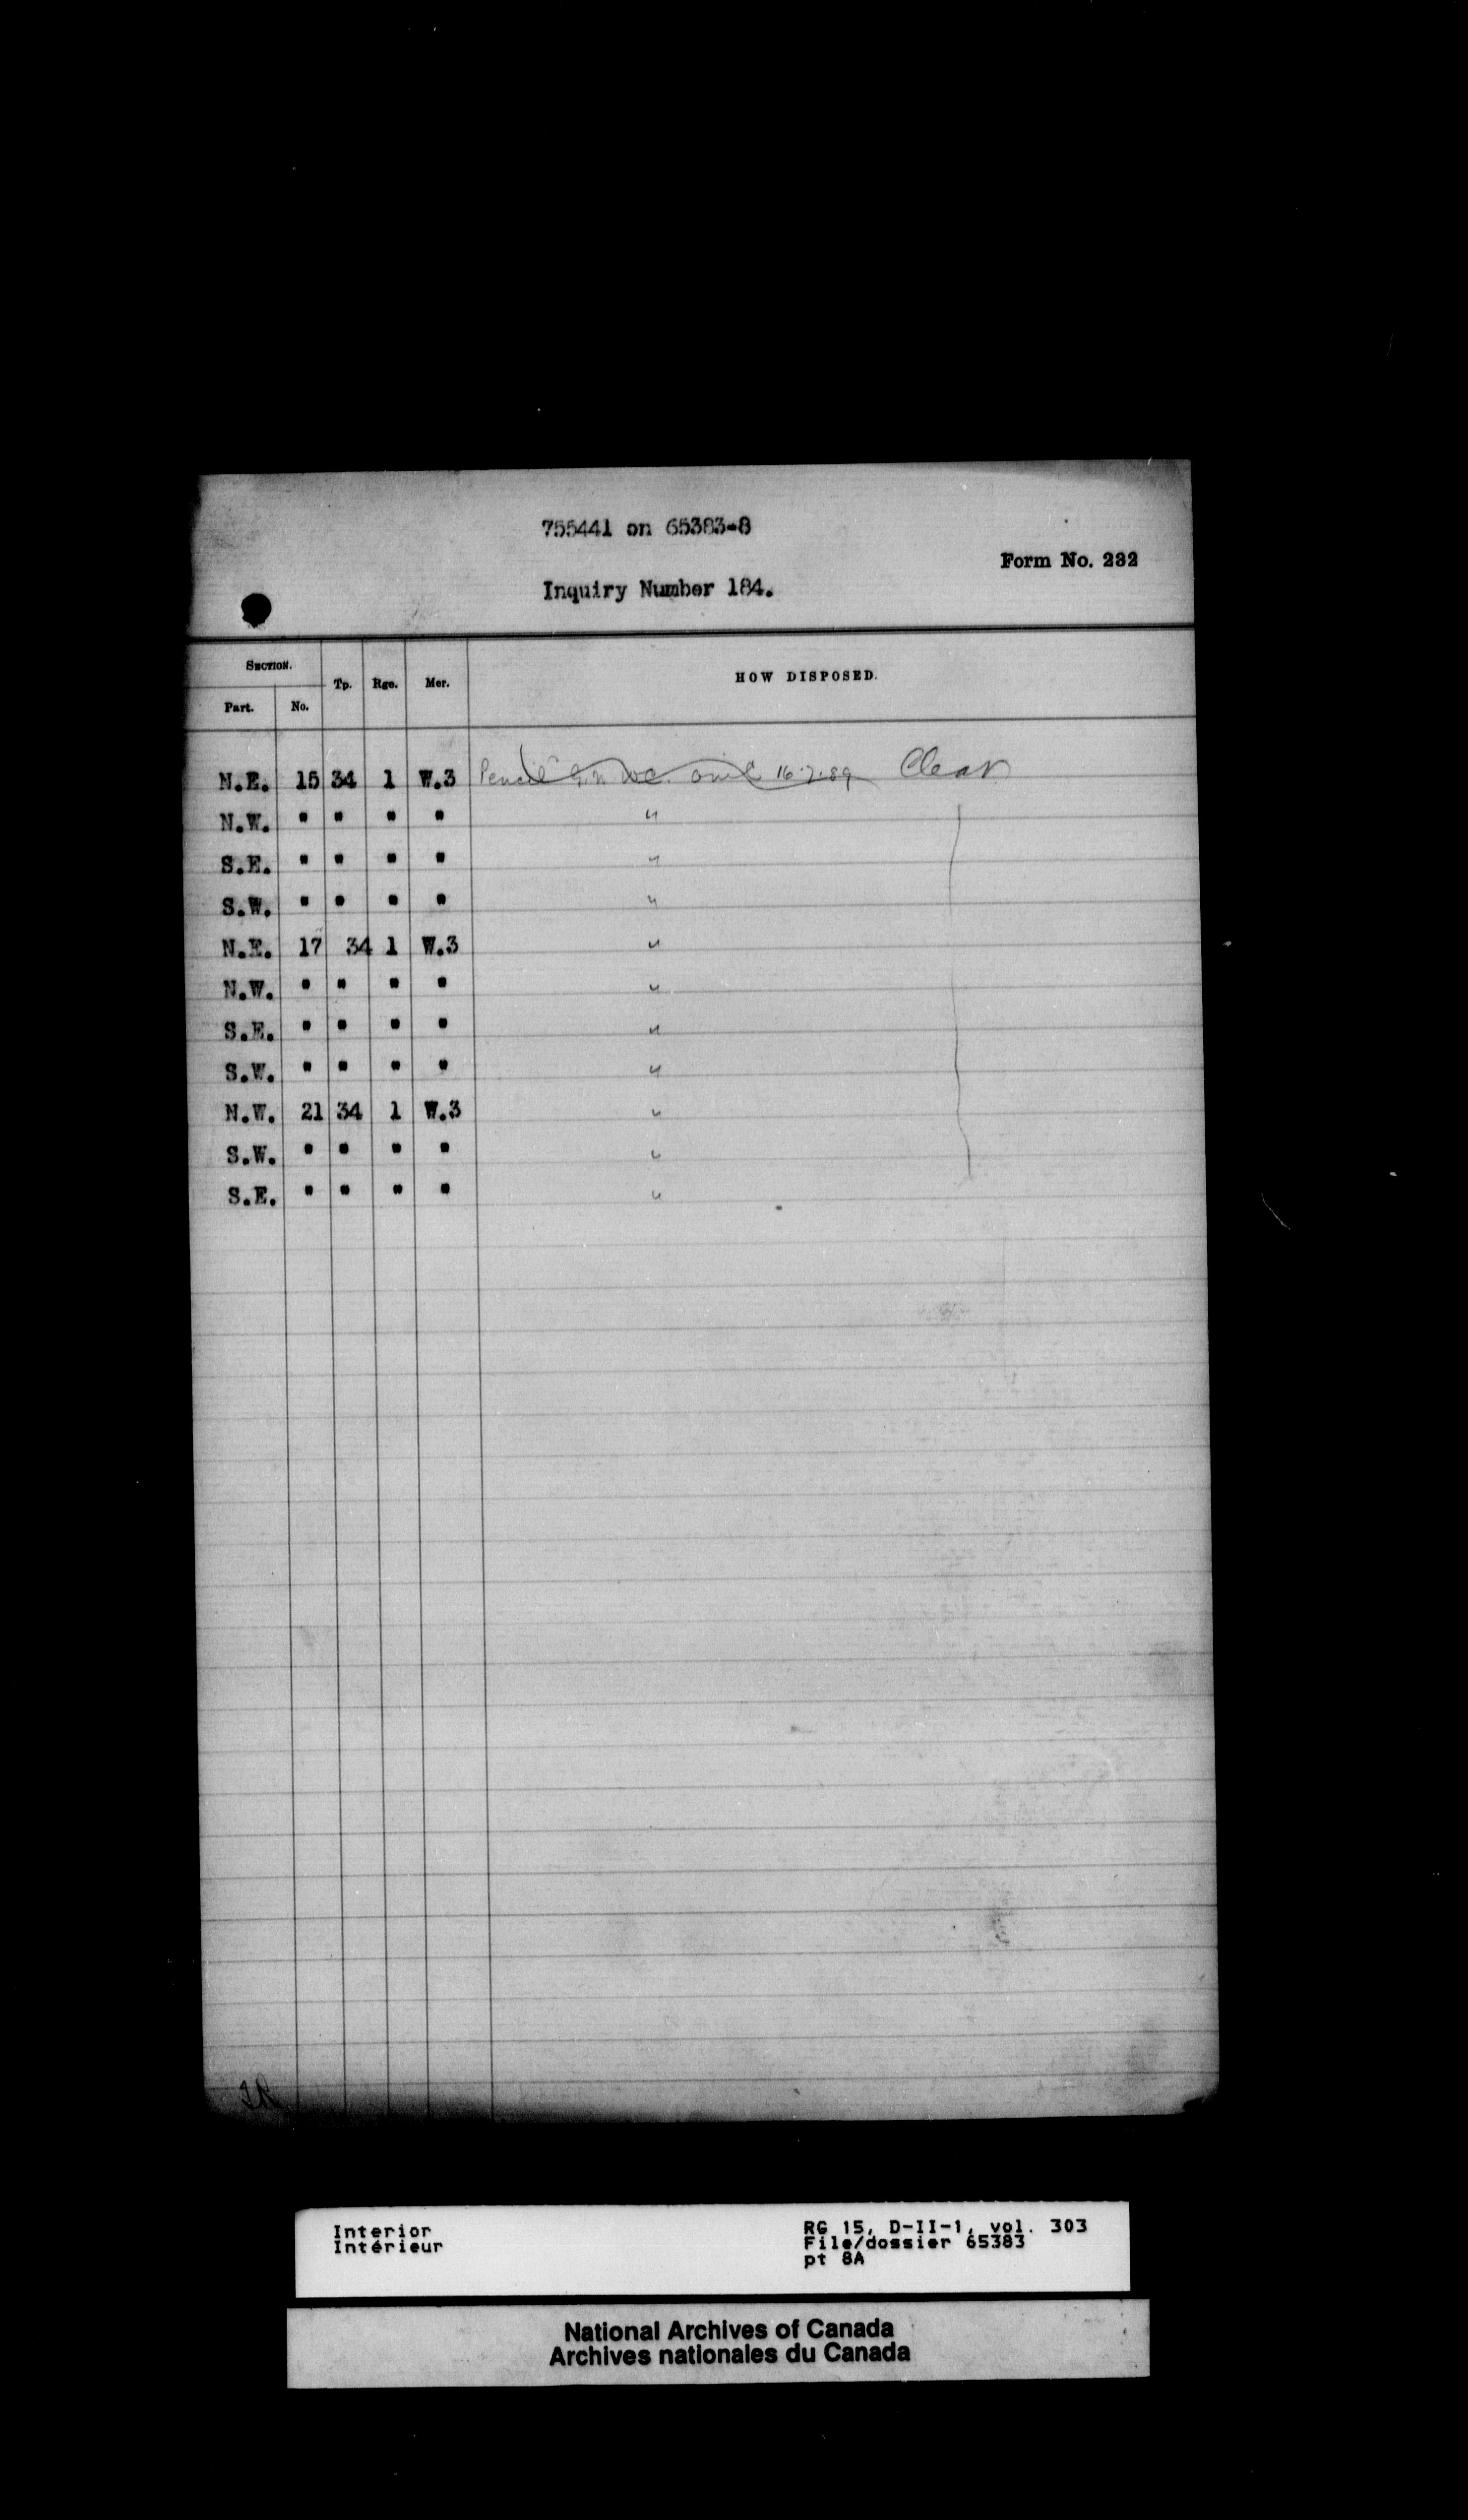 755441 on 65383-8
Form No. 232
Inquiry Number 184.
SECTION. Tp. Rge. Mer. HOW DISPOSED.
Part. No.
N.E. 15 34 1 W.3 Pencil 16.7.89 Clear
N.W. " " " " "
S.E. " " " " "
S.W. " " " " "
N.E. 17 34 1 W.3 "
N.W. " " " " "
S.E. " " " " "
S.W. " " " " "
N.W. 21 34 1 W.3 "
S.W. " " " " "
S.E. " " " " "
Interior RG 15, D-II-1, vol. 303
Intérieur File/dossier 65383
pt 8A
National Archives of Canada
Archives nationales du Canada